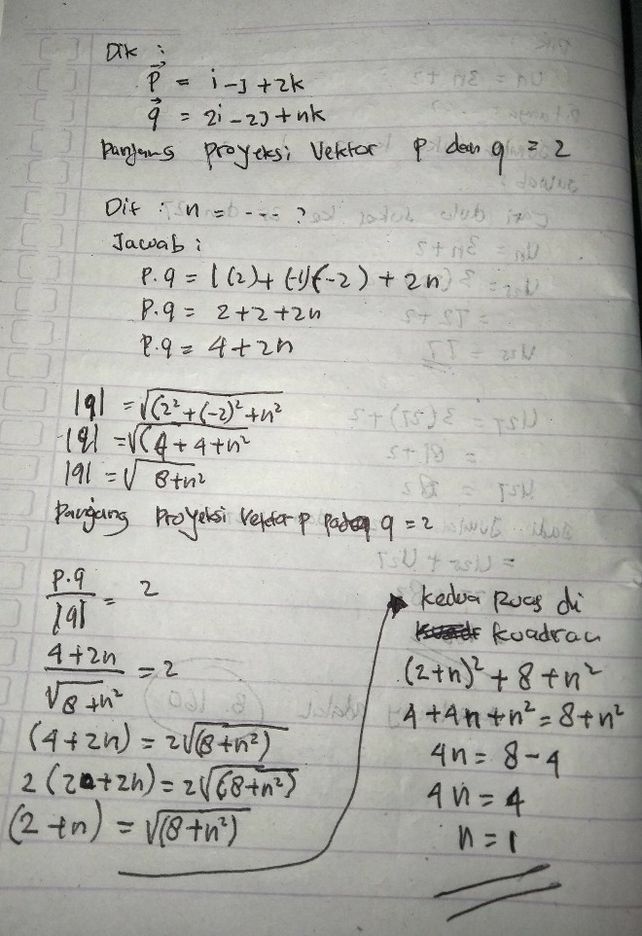 Dik :
p⃗ = i - J + 2k
q⃗ = 2i - 2J + nk
Panjang Proyeksi Vektor p dan q = 2
Dit : n = --- ?
Jawab :
P.q = 1(2) + (-1)(-2) + 2n
P.q = 2+2+2n
P.q = 4+2n
|q| = √(2² + (-2)² + n²
|q| = √(4 + 4 + n²
|q| = √8+n²
Panjang Proyeksi Vektor p pada q = 2
P.q / |q| = 2
4+2n / √8+n² = 2
(4+2n) = 2√(8+n²)
2(2+2n) = 2√(8+n²)
(2+n) = √(8+n²)
kedua Ruas di
kuadran
(2+n)² + 8+n²
4+4n+n² = 8+n²
4n = 8-4
4n = 4
n = 1